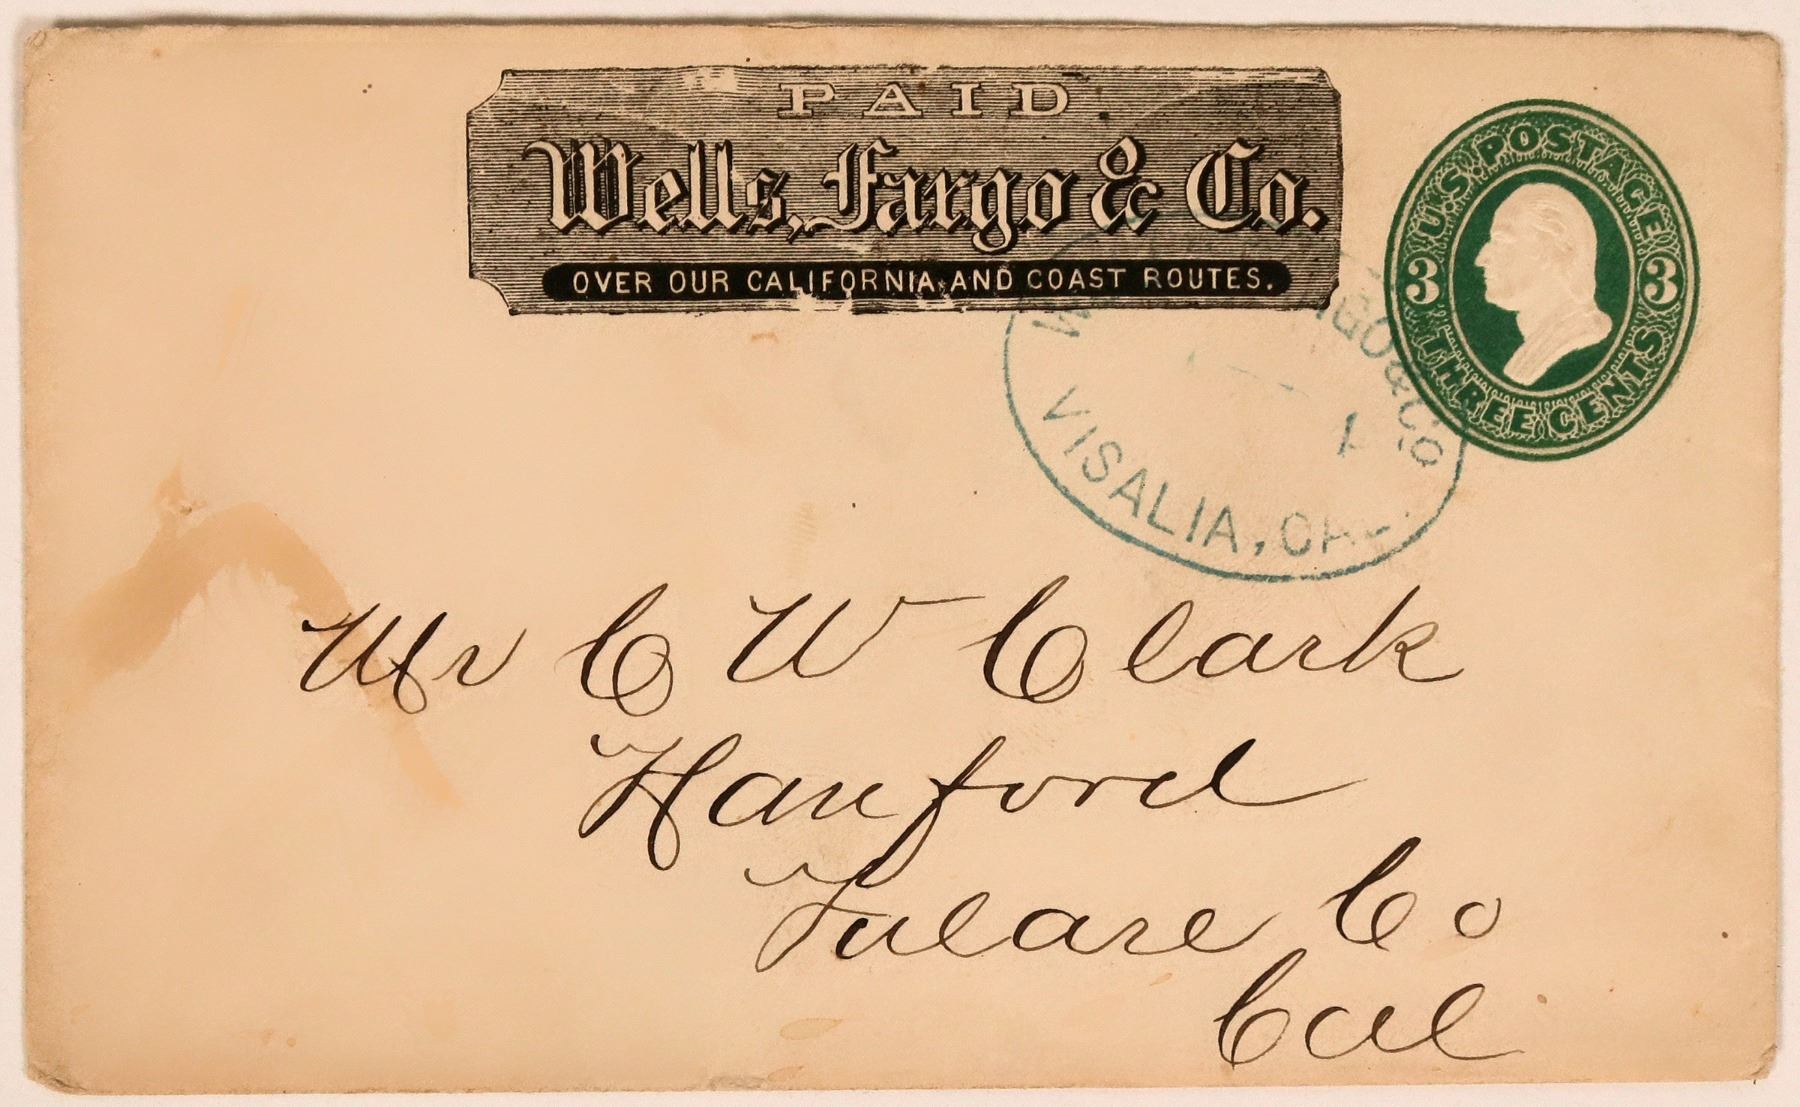 PAID
Wells, Fargo & Co.
OVER OUR CALIFORNIA AND COAST ROUTES.
U.S. POSTAGE
3 3
THREE CENTS
& CO
VISALIA, CAL.
Mr C W Clark
Hanford
Tulare Co
Cal